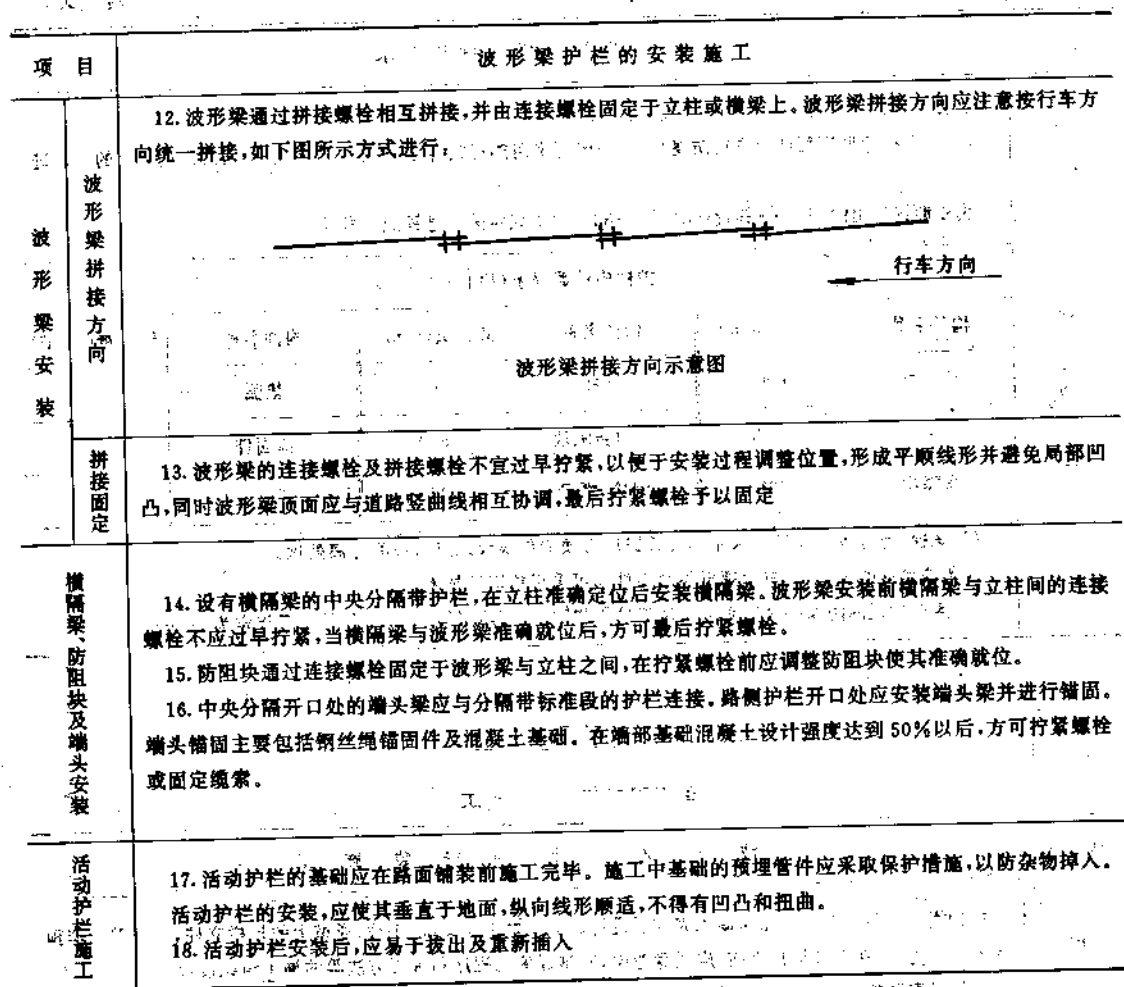 项 目
波形梁护栏的安装施工
波形梁安装
波形梁拼接方向
12.波形梁通过拼接螺栓相互拼接,并由连接螺栓固定于立柱或横梁上。波形梁拼接方向应注意按行车方
向统一拼接,如下图所示方式进行:
行车方向
波形梁拼接方向示意图
拼接固定
13.波形梁的连接螺栓及拼接螺栓不宜过早拧紧,以便于安装过程调整位置,形成平顺线形并避免局部凹
凸,同时波形梁顶面应与道路竖曲线相互协调,最后拧紧螺栓予以固定
横隔梁、防阻块及端头安装
14.设有横隔梁的中央分隔带护栏,在立柱准确定位后安装横隔梁。波形梁安装前横隔梁与立柱间的连接
螺栓不应过早拧紧,当横隔梁与波形梁准确就位后,方可最后拧紧螺栓。
15.防阻块通过连接螺栓固定于波形梁与立柱之间,在拧紧螺栓前应调整防阻块使其准确就位。
16.中央分隔开口处的端头梁应与分隔带标准段的护栏连接。路侧护栏开口处应安装端头梁并进行锚固。
端头锚固主要包括钢丝绳锚固件及混凝土基础。在端部基础混凝土设计强度达到50%以后,方可拧紧螺栓
或固定缆索。
活动护栏施工
17.活动护栏的基础应在路面铺装前施工完毕。施工中基础的预埋管件应采取保护措施,以防杂物掉入。
活动护栏的安装,应使其垂直于地面,纵向线形顺适,不得有凹凸和扭曲。
18.活动护栏安装后,应易于拔出及重新插入